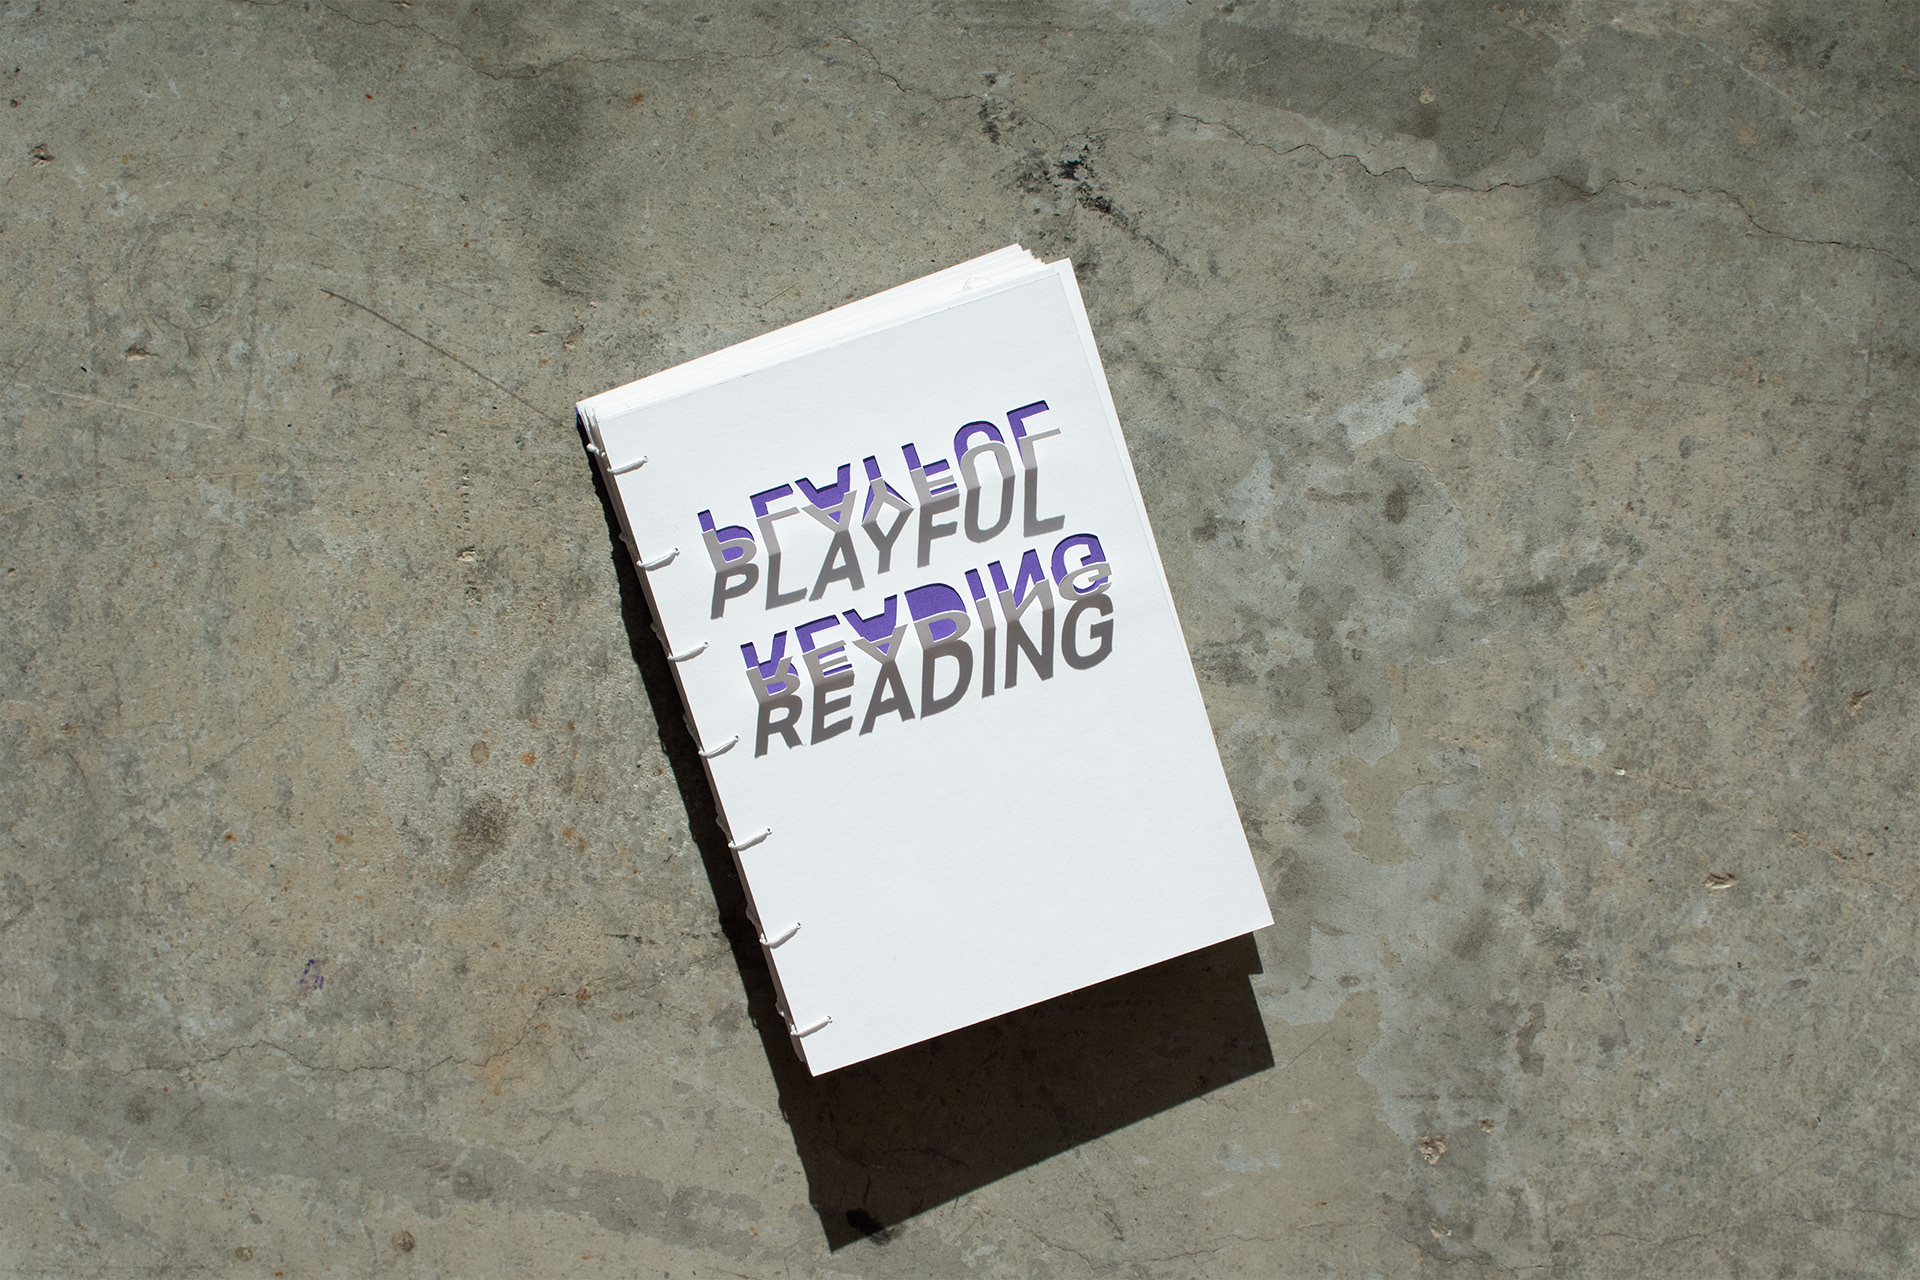 PLAYFUL
READING